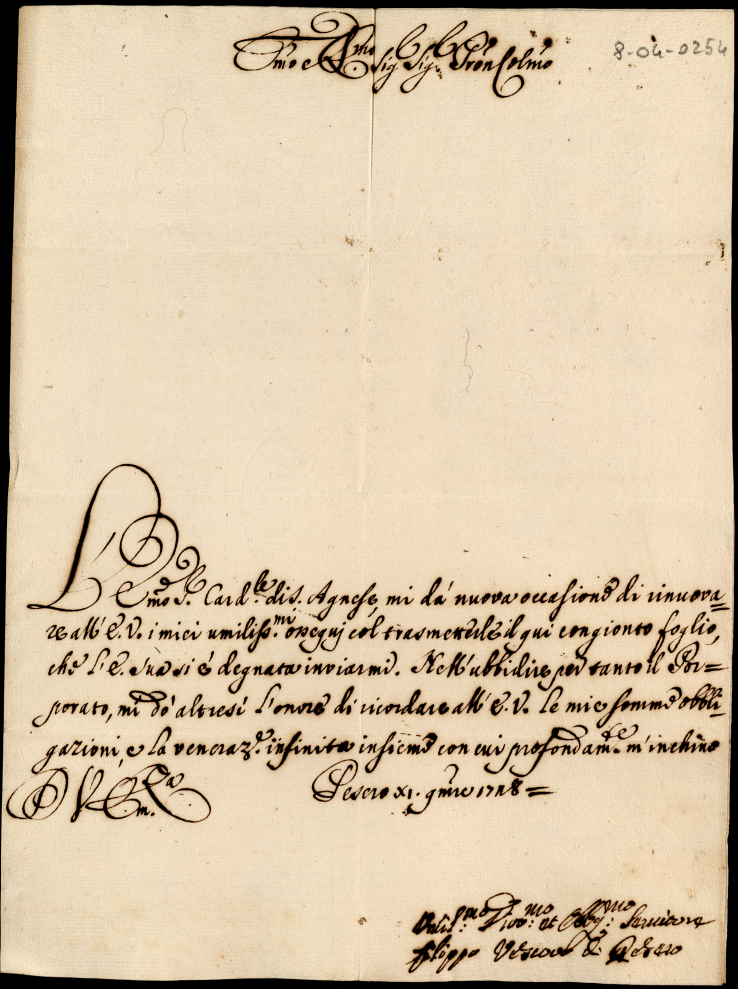 Emo e Rmo Sig Sig Pron Colmo
8-04-0254
L'Emo S. Card.le di S. Agnese, mi dà nuova occasione di rinuova=
re all'E.V. i miei umiliss.mi ossequj col trasmetterle il qui congionto foglio,
che l'E. Sua si è degnata inviarmi. Nell'ubbidire per tanto il Por=
porato, mi dò altresì l'onore di ricordare all'E.V. le mie somme obbli=
gazioni, e la veneraz.e infinita insieme con cui profondam.te m'inchino
D V Em.za
Pesero XI. 9mre 1728=
Umil.mo Divo.mo et Obbg.mo Servitore
Filippo Vescovo di Pesero